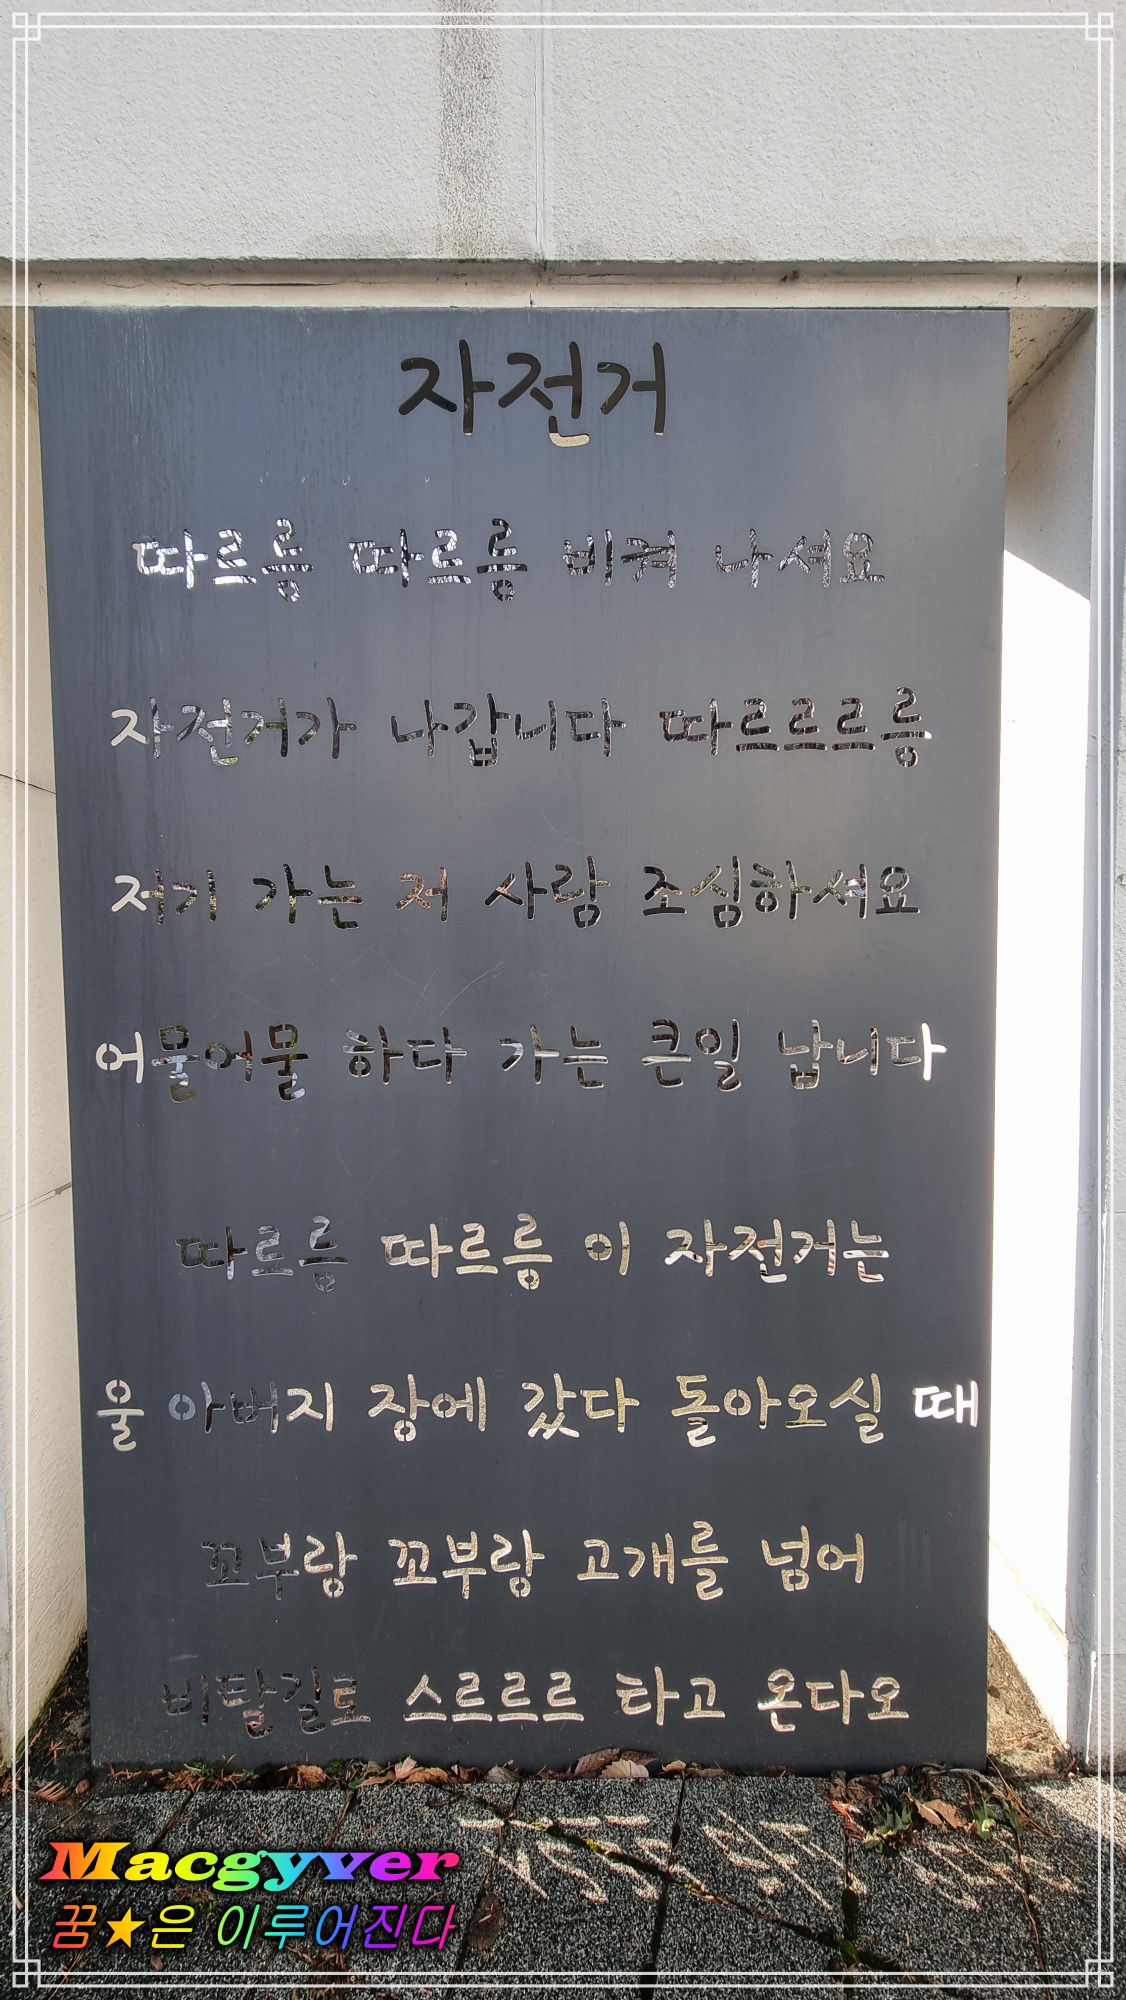 자전거
따르릉 따르릉 비켜 나셔요
자전거가 나갑니다 따르르르릉
저기 가는 저 사람 조심하셔요
어물어물 하다 가는 큰일 납니다
따르릉 따르릉 이 자전거는
울 아버지 장에 갔다 돌아오실 때
꼬부랑 꼬부랑 고개를 넘어
비탈길도 스르르르 타고 온다오
Macgyver
꿈★은 이루어진다